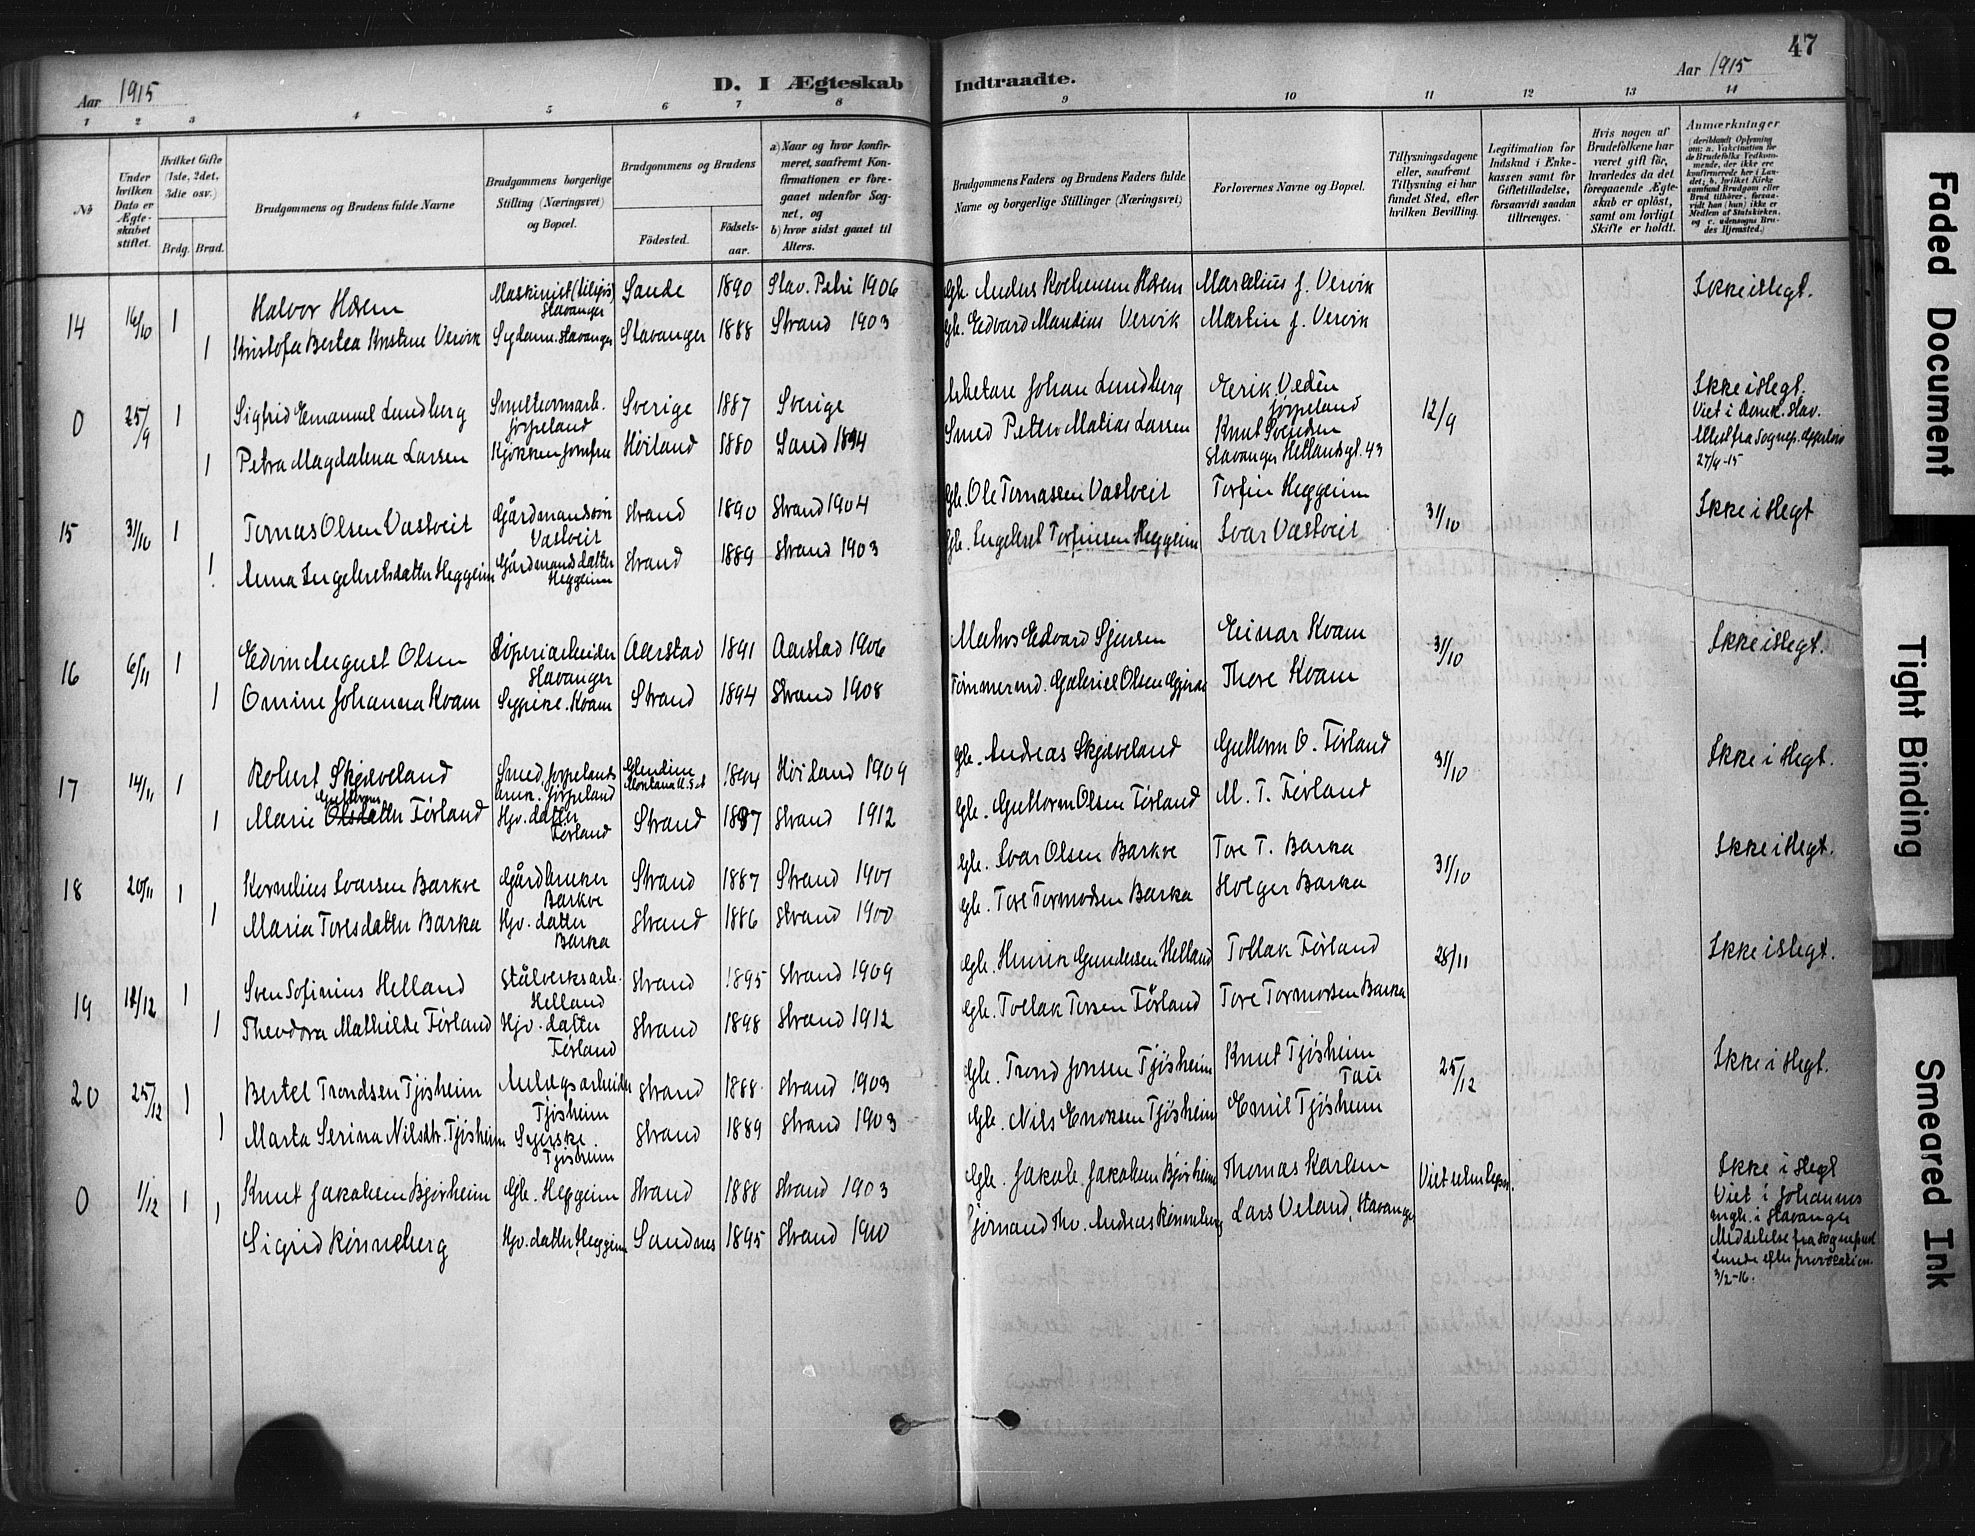 Aar 1915
D. I Ægteskab Indtraadte.
Aar 1915
47
1 2 3 4 5 6 7 8 9 10 11 12 13 14
№
Under hvilken Dato er Ægteskabet stiftet.
Hvilket Gifte (1ste, 2det, 3die osv.)
Brdg. Brud.
Brudgommens og Brudens fulde Navne
Brudgommens borgerlige Stilling (Næringsvei) og Bopæl.
Brudgommens og Brudens
Födested.
Födselsaar.
a) Naar og hvor konfirmeret, saafremt Konfirmationen er foregaaet udenfor Sognet, og
b) hvor sidst gaaet til Alters.
Brudgommens Faders og Brudens Faders fulde Navne og borgerlige Stillinger (Næringsvei)
Forlovernes Navne og Bopæl.
Tillysningsdagene eller, saafremt Tillysning ei har fundet Sted, efter hvilken Bevilling.
Legitimation for Indskud i Enkekassen samt for Giftetilladelse, forsaavidt saadan tiltrænges.
Hvis nogen af Brudefolkene har været gift før, hvorledes da det foregaaende Ægteskab er opløst, samt om lovligt Skifte er holdt.
Anmærkninger
(deriblandt Oplysning om: a. Vakcination for de Brudefolks Vedkommende, der ikke ere konfirmerede her i Landet; b. hvilket Kirkesamfund Brudgom eller Brud tilhører, forsaavidt han (hun) ikke er Medlem af Statskirken, og c. udensogns Brudes Hjemsted.)
14 16/10 1 Halvor Hösen Maskinist Stavanger Sande 1890 Stav. Petri 1906 Marselius J. Vervik Ikke i slegt.
1 Kristofa Bertea Kristine Vervik Sydame. Stavanger Stavanger 1888 Strand 1903 Gbr. Edvard Vervik Martin J. Vervik
0 25/9 1 Sigfrid Emanuel Lundberg Jørpeland Sverige 1887 Sverige Arbetare Johan Lundberg Erik Vedén Jørpeland 12/9 Ikke i slegt.
1 Petra Magdalena Larsen Kjökkenjomfru Høiland 1880 Sand 1894 Smed Petter Matias Larsen Knut Svendsen Stavanger Hetlandsgt. 43 27/9-15
15 31/10 1 Tomas Olsen Vastveit Gårdmandssön Vastveit Strand 1890 Strand 1904 Gbr. Ole Tomassen Vastveit Torfin Heggeim 31/10 Ikke i slegt
1 Anna Engebretsdatter Heggeim Gårdmandsdatter Heggeim Strand 1889 Strand 1903 Gbr. Engebret Torfinsen Heggeim Ivar Vastveit
16 6/11 1 Edvin August Olsen Stavanger Aarstad 1891 Aarstad 1906 Edvard Einar Kvam 31/10 Ikke i slegt.
1 Omine Johanna Kvam Kvam Strand 1894 Strand 1908 Tömmermd. Gabriel Olsen Thore Kvam
17 14/11 1 Robert Skjæveland Smed, Jørpeland Glendive Montana U.S.A 1894 Høiland 1909 Gbr. Andreas Skjæveland Guttorm O. Førland 31/10 Ikke i slegt.
1 Marie Guttorms Olsdatter Førland Hjv. datter Førland Strand 1897 Strand 1912 Gbr. Guttorm Olsen Førland M. T. Førland
18 20/11 1 Kornelius Ivarsen Barkve Gårdbruker Barkve Strand 1887 Strand 1901 Gbr. Ivar Olsen Barkve Tore T. Barka 31/10 Ikke i slegt.
1 Maria Toresdatter Barka Hjv. datter Barka Strand 1886 Strand 1900 Gbr. Tore Tormodsen Barka Holger Barka
19 12/12 1 Sven Sofinius Helland Stålverksarb. Helland Strand 1895 Strand 1909 Gbr. Henrik Gundersen Helland Tollak Førland 28/11 Ikke i slegt.
1 Theodora Mathilde Førland Hjv. datter Førland Strand 1898 Strand 1912 Gbr. Tollak Torsen Førland Tore Tormodsen Barka
20 25/12 1 Bertel Trondsen Tjøsheim Anlægsarbeider Tjøsheim Strand 1888 Strand 1903 Gbr. Trond Jonsen Tjøsheim Knut Tjøsheim Tau 25/12 Ikke i slegt.
1 Marta Serina Nilsdtr. Tjøsheim Syerske. Tjøsheim Strand 1889 Strand 1903 Gbr. Nils Enoksen Tjøsheim Emil Tjøsheim
0 1/12 1 Knut Jakobsen Bjørheim Gbr. Heggeim Strand 1888 Strand 1903 Gbr. Jakob Jakobsen Bjørheim Thomas Karlsen Ikke i slegt
1 Sigrid Rönneberg Hjv. datter, Heggeim Sandnes 1895 Strand 1910 Andreas Rönneberg Lars Veland, Stavanger Viet i Johannes
i Stavanger
Meddelelse fra
Lunde efter provokation.
3/2-16.
Faded Document
Tight Binding
Smeared Ink